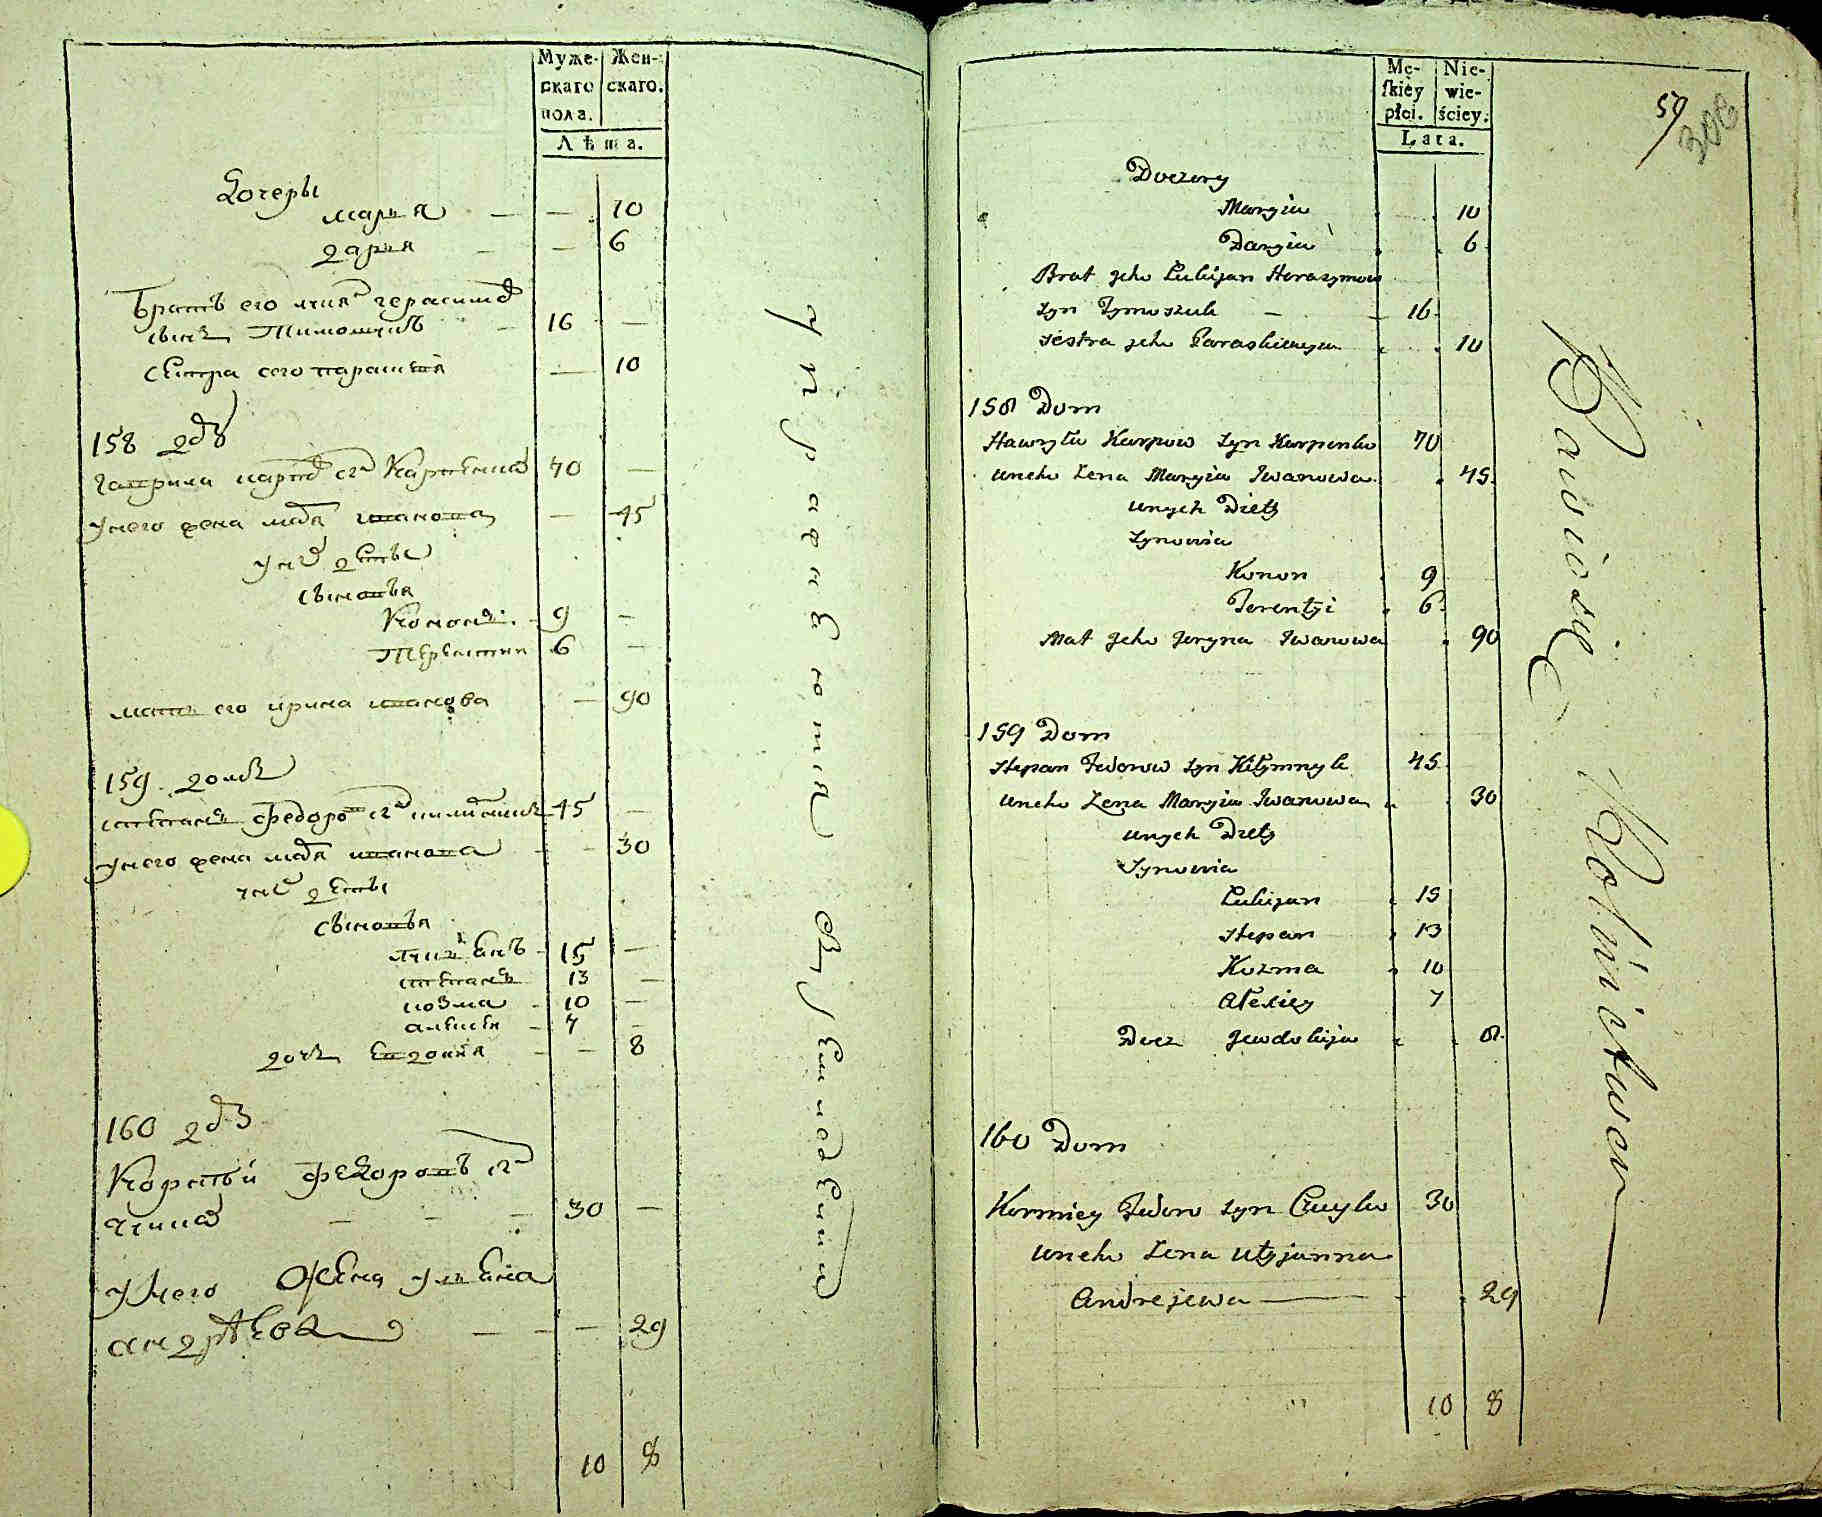 Муже-
скаго
пола.
Жен-
скаго.
Лѣта.
Дочери
марья — — 10
дарья — — 6
Братъ его лукіянъ герасимов
сынъ Тимошукъ — 16 —
сестра его парасковия — 10
158 домъ
гаврила карповъ сынъ Карпенко 70 —
у него жена марья иванова — 45
у них дети
сыновья
Кононъ 9 —
Терентии 6 —
мать его ирина иванова — 90
159 домъ
степанъ федоровъ сынъ 45 —
у него жена марья иванова — 30
у них дети
сыновья
лукіянъ 15 —
степанъ 13 —
козма 10 —
алексей 7 —
дочь евдокия — — 8
160 домъ
Корнѣй федоровъ сынъ
30 —
у него жена ульяна
андрѣева — — — 29
10 8
упражняются в хлебопашестве
Mę-
skiéy
płci.
Nie-
wie-
ściey.
Lata.
59
308
Doczery
Maryia 10
Daryia 6
Brat jeho Łukijan Harasymow
syn Tymoszuk — 16
sestra jeho Paraskiewyia 10
158 Dom
Hawryło Karpow syn Karpenko 70
uneho Żena Maryia Iwanowa 45
unych Diety
Synowia
Konon 9
Terentyi 6
Mat jeho Jeryna Iwanowa 90
159 Dom
Stepan Fedorow syn 45
uneho Żena Maryia Iwanowa 30
unych Diety
Synowia
Łukijan 15
Stepan 13
Kozma 10
Alexiey 7
Docz Jewdokija 8
160 Dom
Korniey Fedorow syn 30
uneho Żena Ulyjanna
Andrejewa — 29
10 8
Bawiosię Rolnictwem